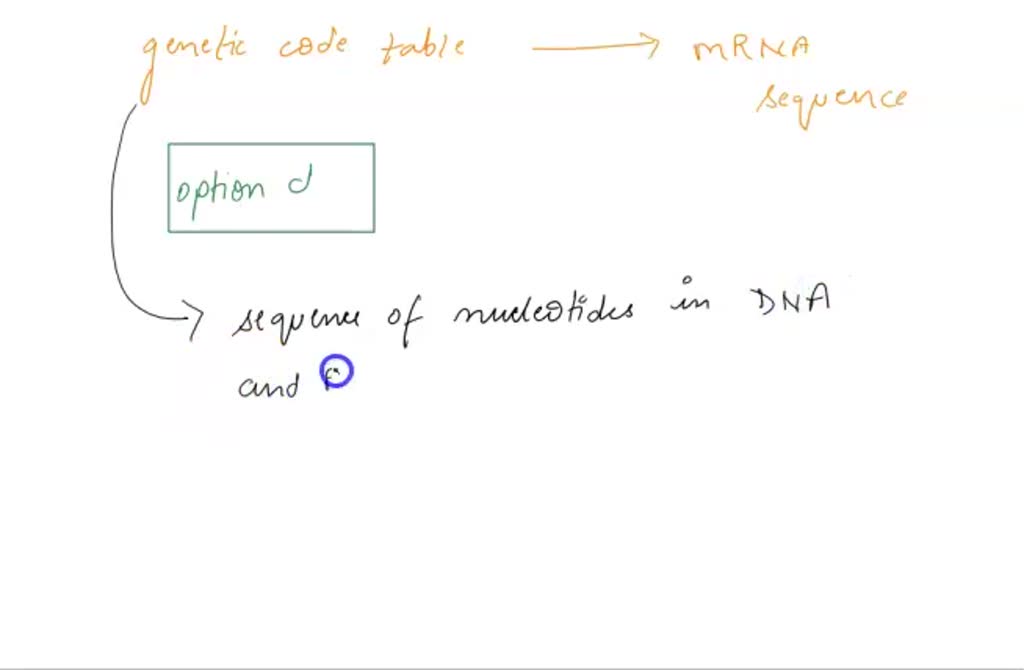 genetic code table → mRNA
sequence
option d
sequence of nucleotides in DNA
and